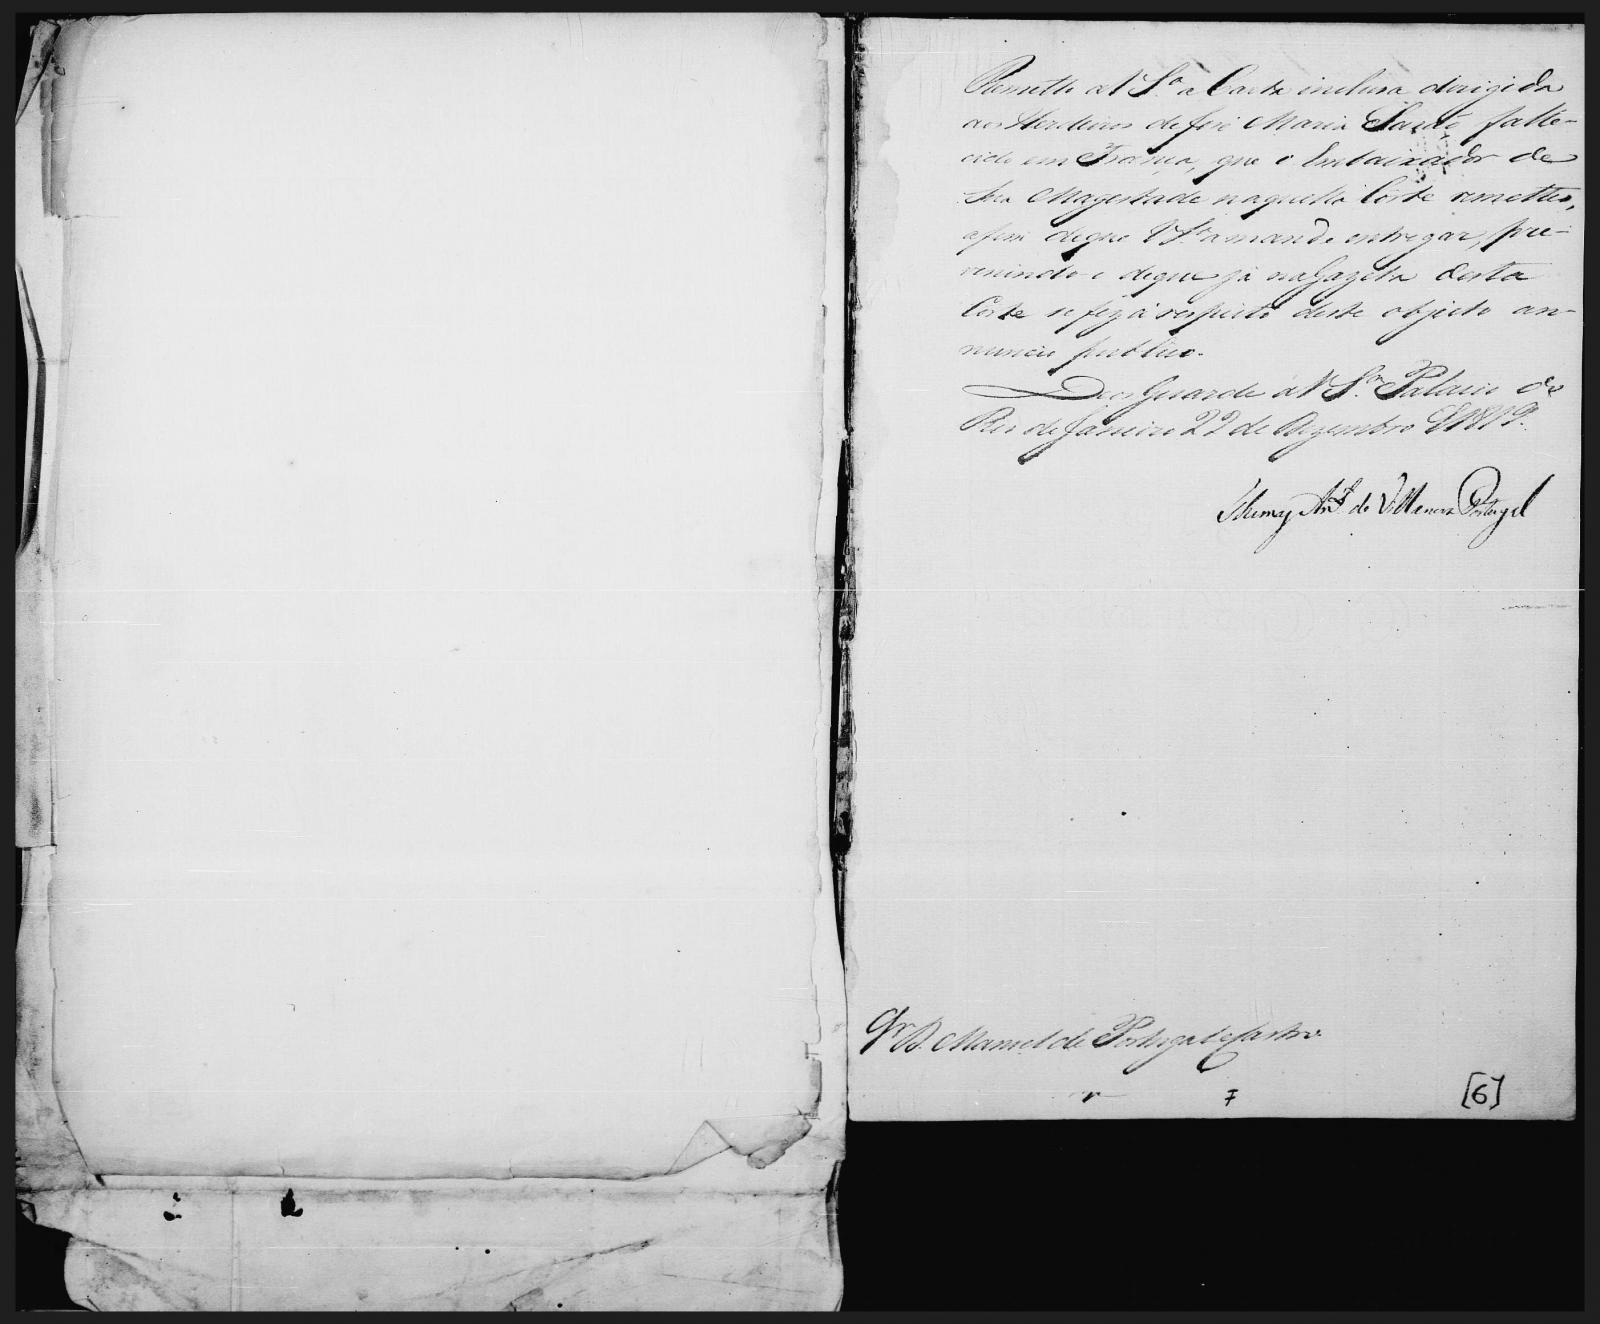 Remetto a V S.ª a Carta inclusa dirigida
aos Herdeiros de José Maria falle-
cido em França, que o Embaixador de
Sua Magestade naquella Corte remetteo,
afim de que V S.ª a mande entregar, pre-
venindo o de que já na Gazeta desta
Corte se fez á respeito deste objecto an-
nuncio publico.
Deos Guarde a V S.ª Palacio do
Rio de Janeiro 22 de Dezembro de 1819.
Thomaz Ant.º de Villanova Portugal
Sr D. Manoel de Portugal e Castro
[6]